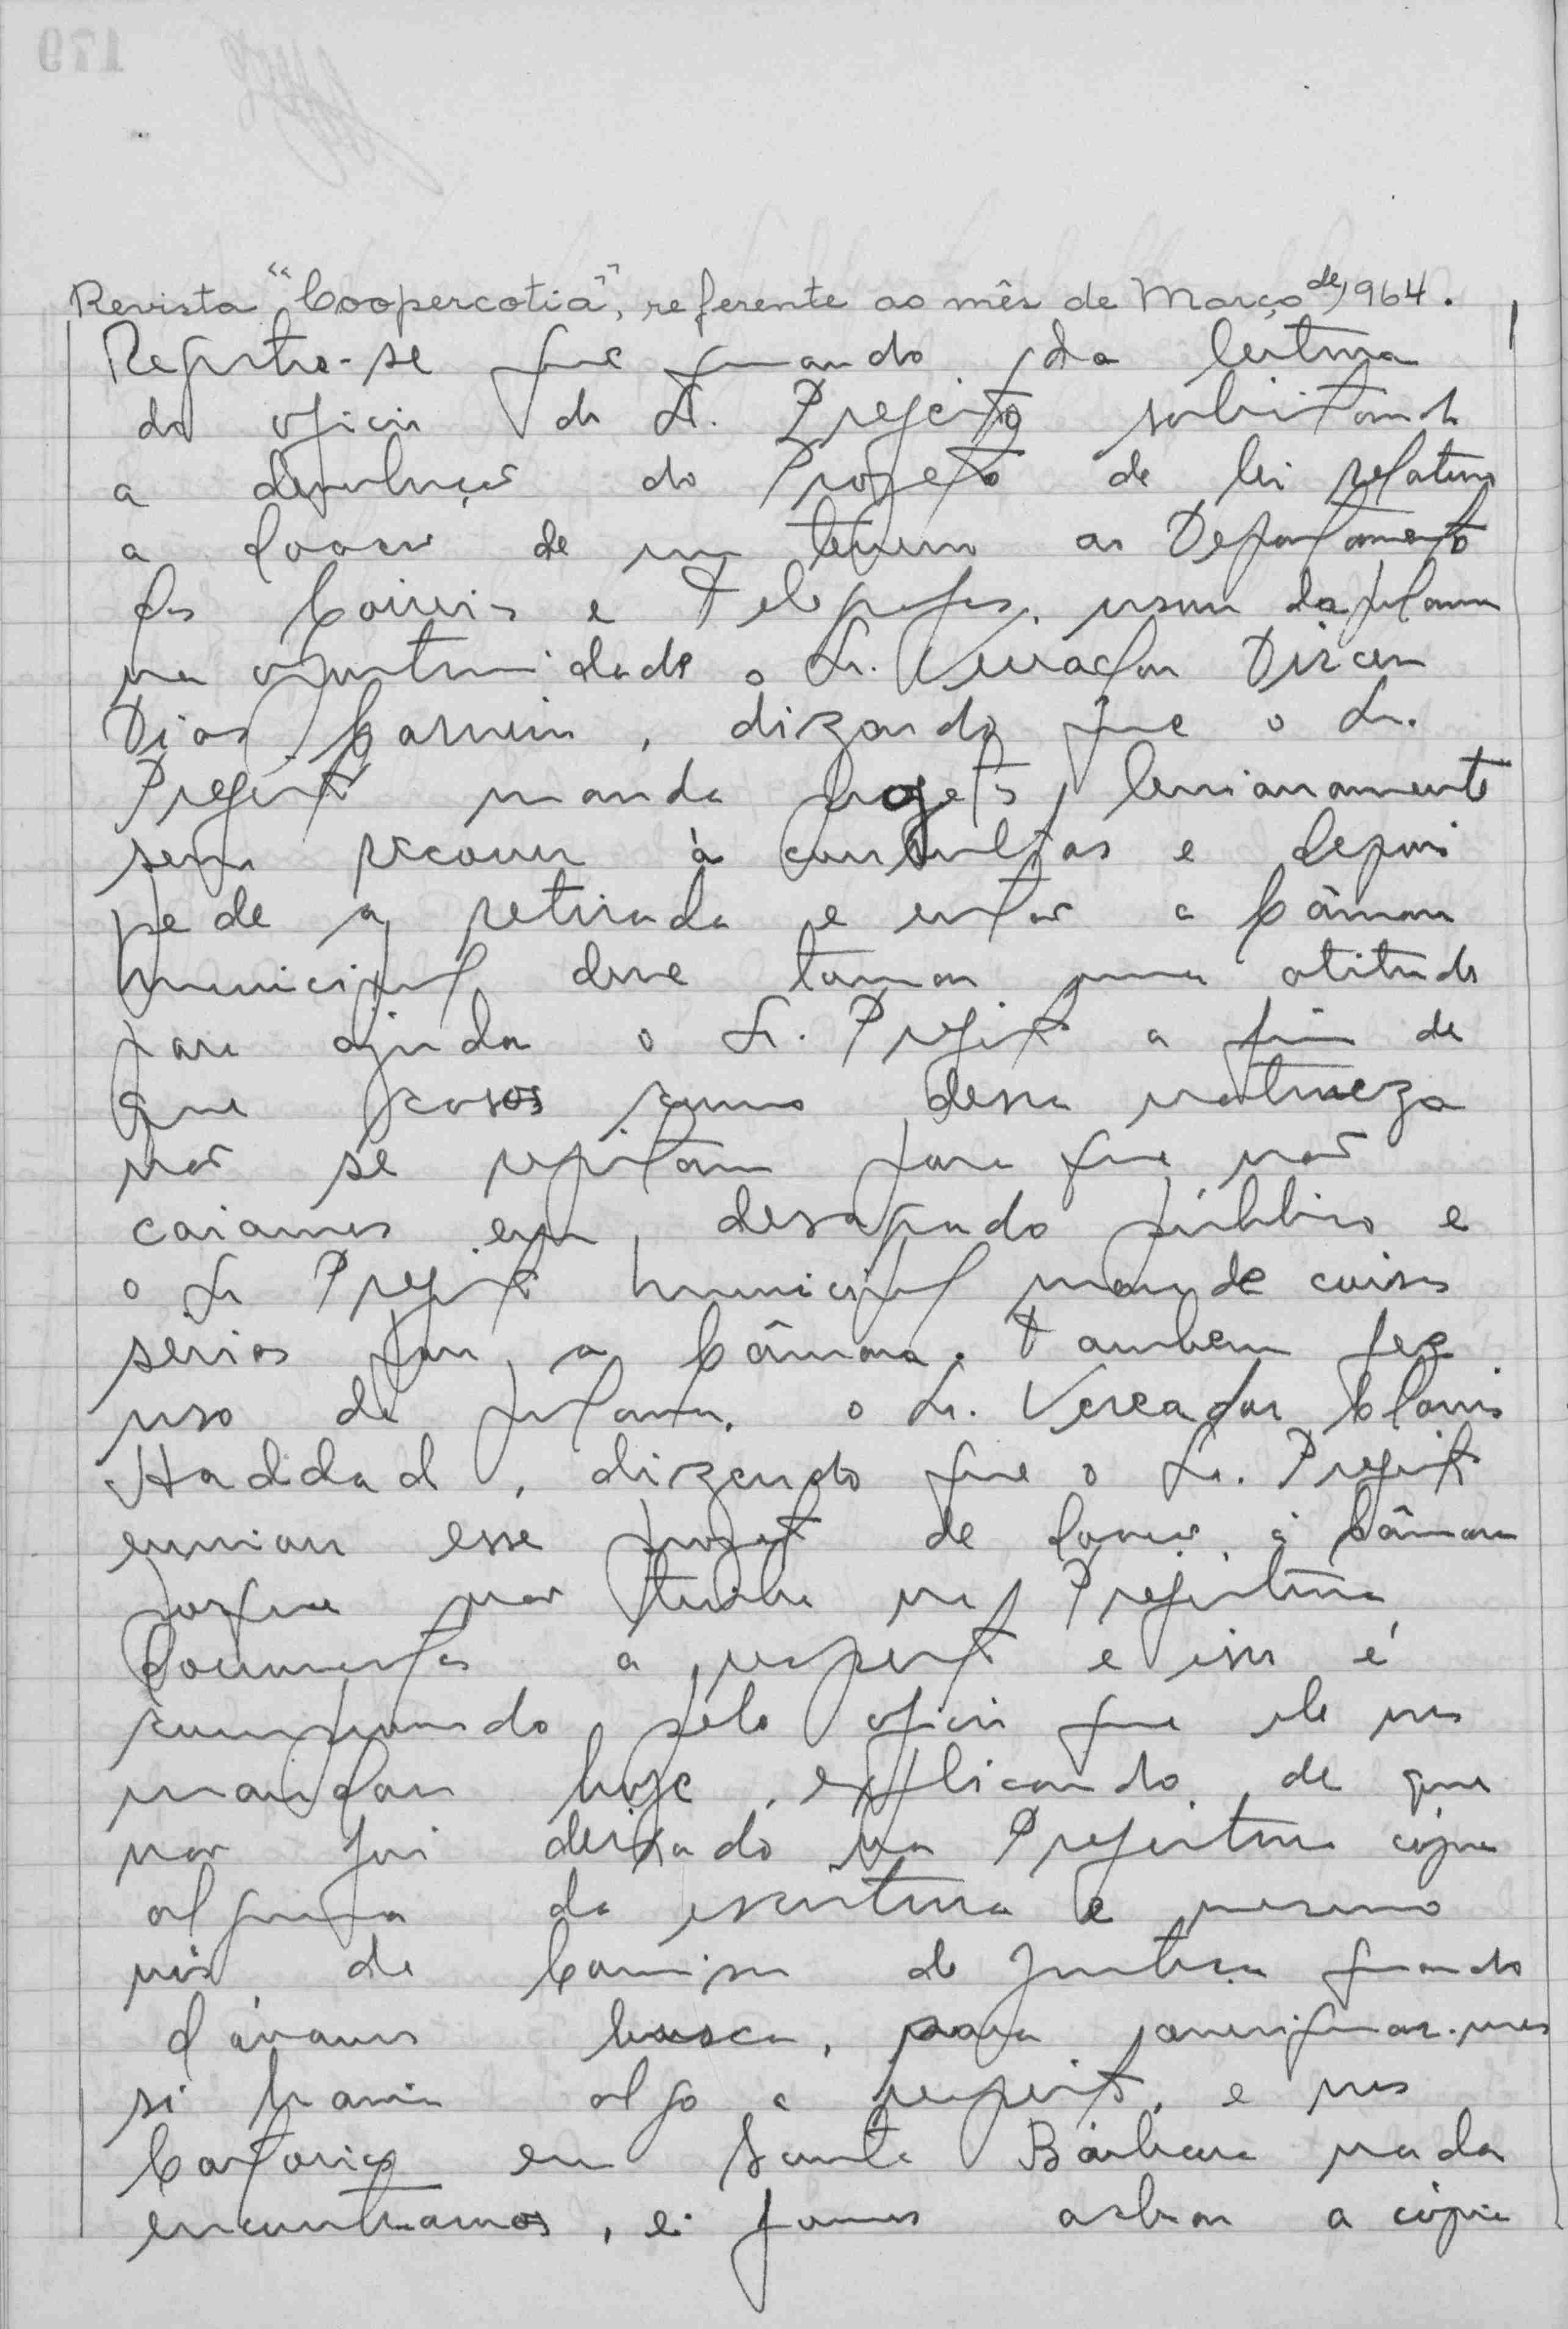 Revista "Coopercotia", referente ao mês de Março de 1964.
Registra-se que quando da leitura
do oficio do Sr. Prefeito solicitando
a devolução do Projeto de lei relativo
a doação de um terreno ao Departamento
dos Correios e Telegrafos, usou da palavra
na oportunidade o Sr. Vereador Dirceu
Dias Carneiro, dizendo que o Sr.
Prefeito manda projetos levianamente
sem recorrer à consultas e depois
pede a retirada e então a Câmara
Municipal deve tomar uma atitude
para ajudar o Sr. Prefeito a fim de
que casos como dessa natureza
não se repitam para que não
caiamos em desagrado público e
o Sr Prefeito Municipal mande coisas
sérias para a Câmara. Tambem fez
uso da palavra, o Sr. Vereador Clovis
Haddad, dizendo que o Sr. Prefeito
enviou esse projeto de doação à Câmara
porque não tinha na Prefeitura
documentos a respeito e isso é
comprovado pelo oficio que ele nos
mandou hoje, explicando de que
não foi deixado na Prefeitura cópia
alguma da escritura e mesmo
nós da Comissão de Justiça quando
dávamos busca, para averiguar-mos
si havia algo a respeito, e nos
Cartorios em Santa Bárbara nada
encontramos, e fomos achar a cópia